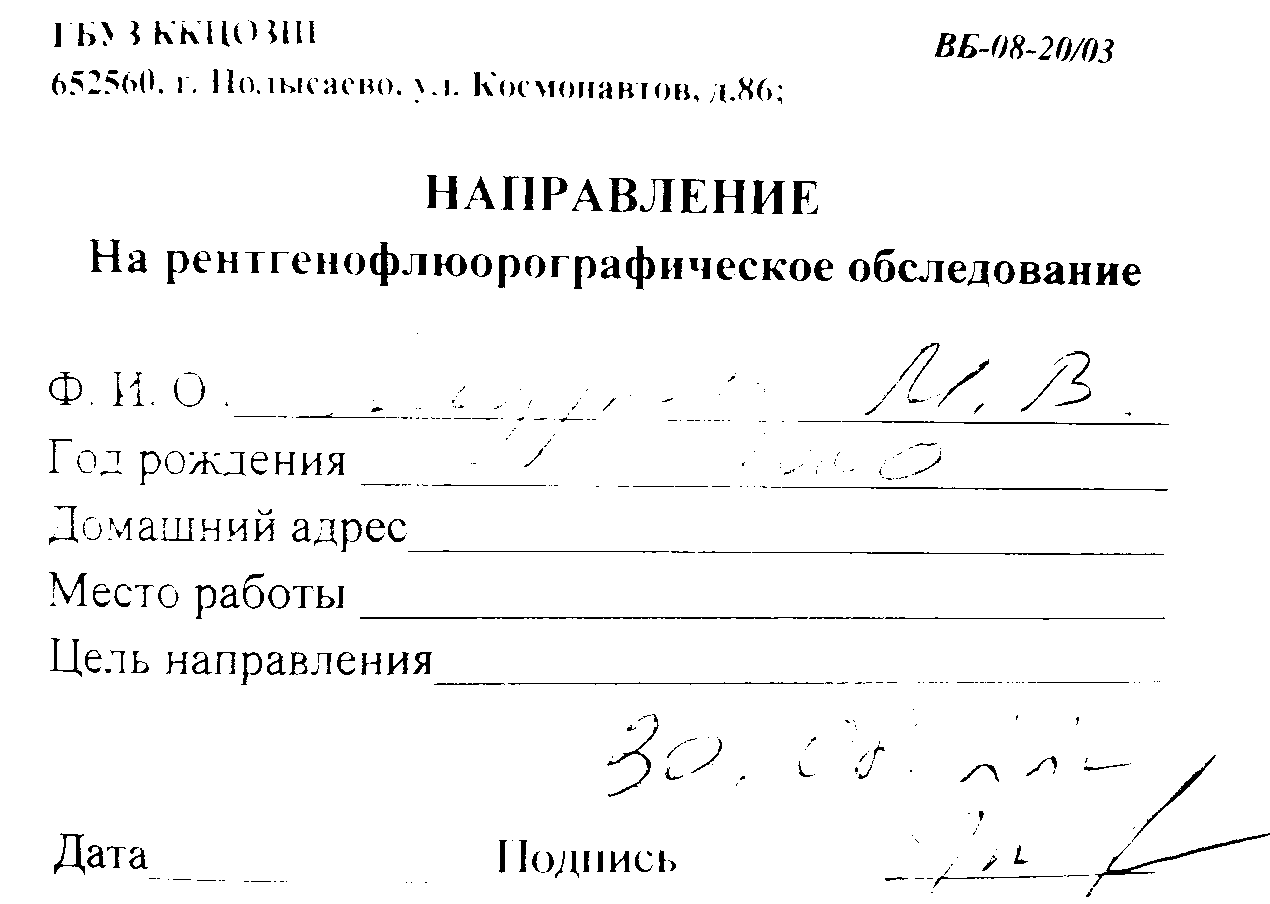 ГБУЗ ККЦОЗШ
ВБ-08-20/03
652560, г. Полысаево, ул. Космонавтов, д.86;
НАПРАВЛЕНИЕ
На рентгенофлюорографическое обследование
Ф. И. О. М. В.
Год рождения
Домашний адрес
Место работы
Цель направления
30.
Дата Подпись